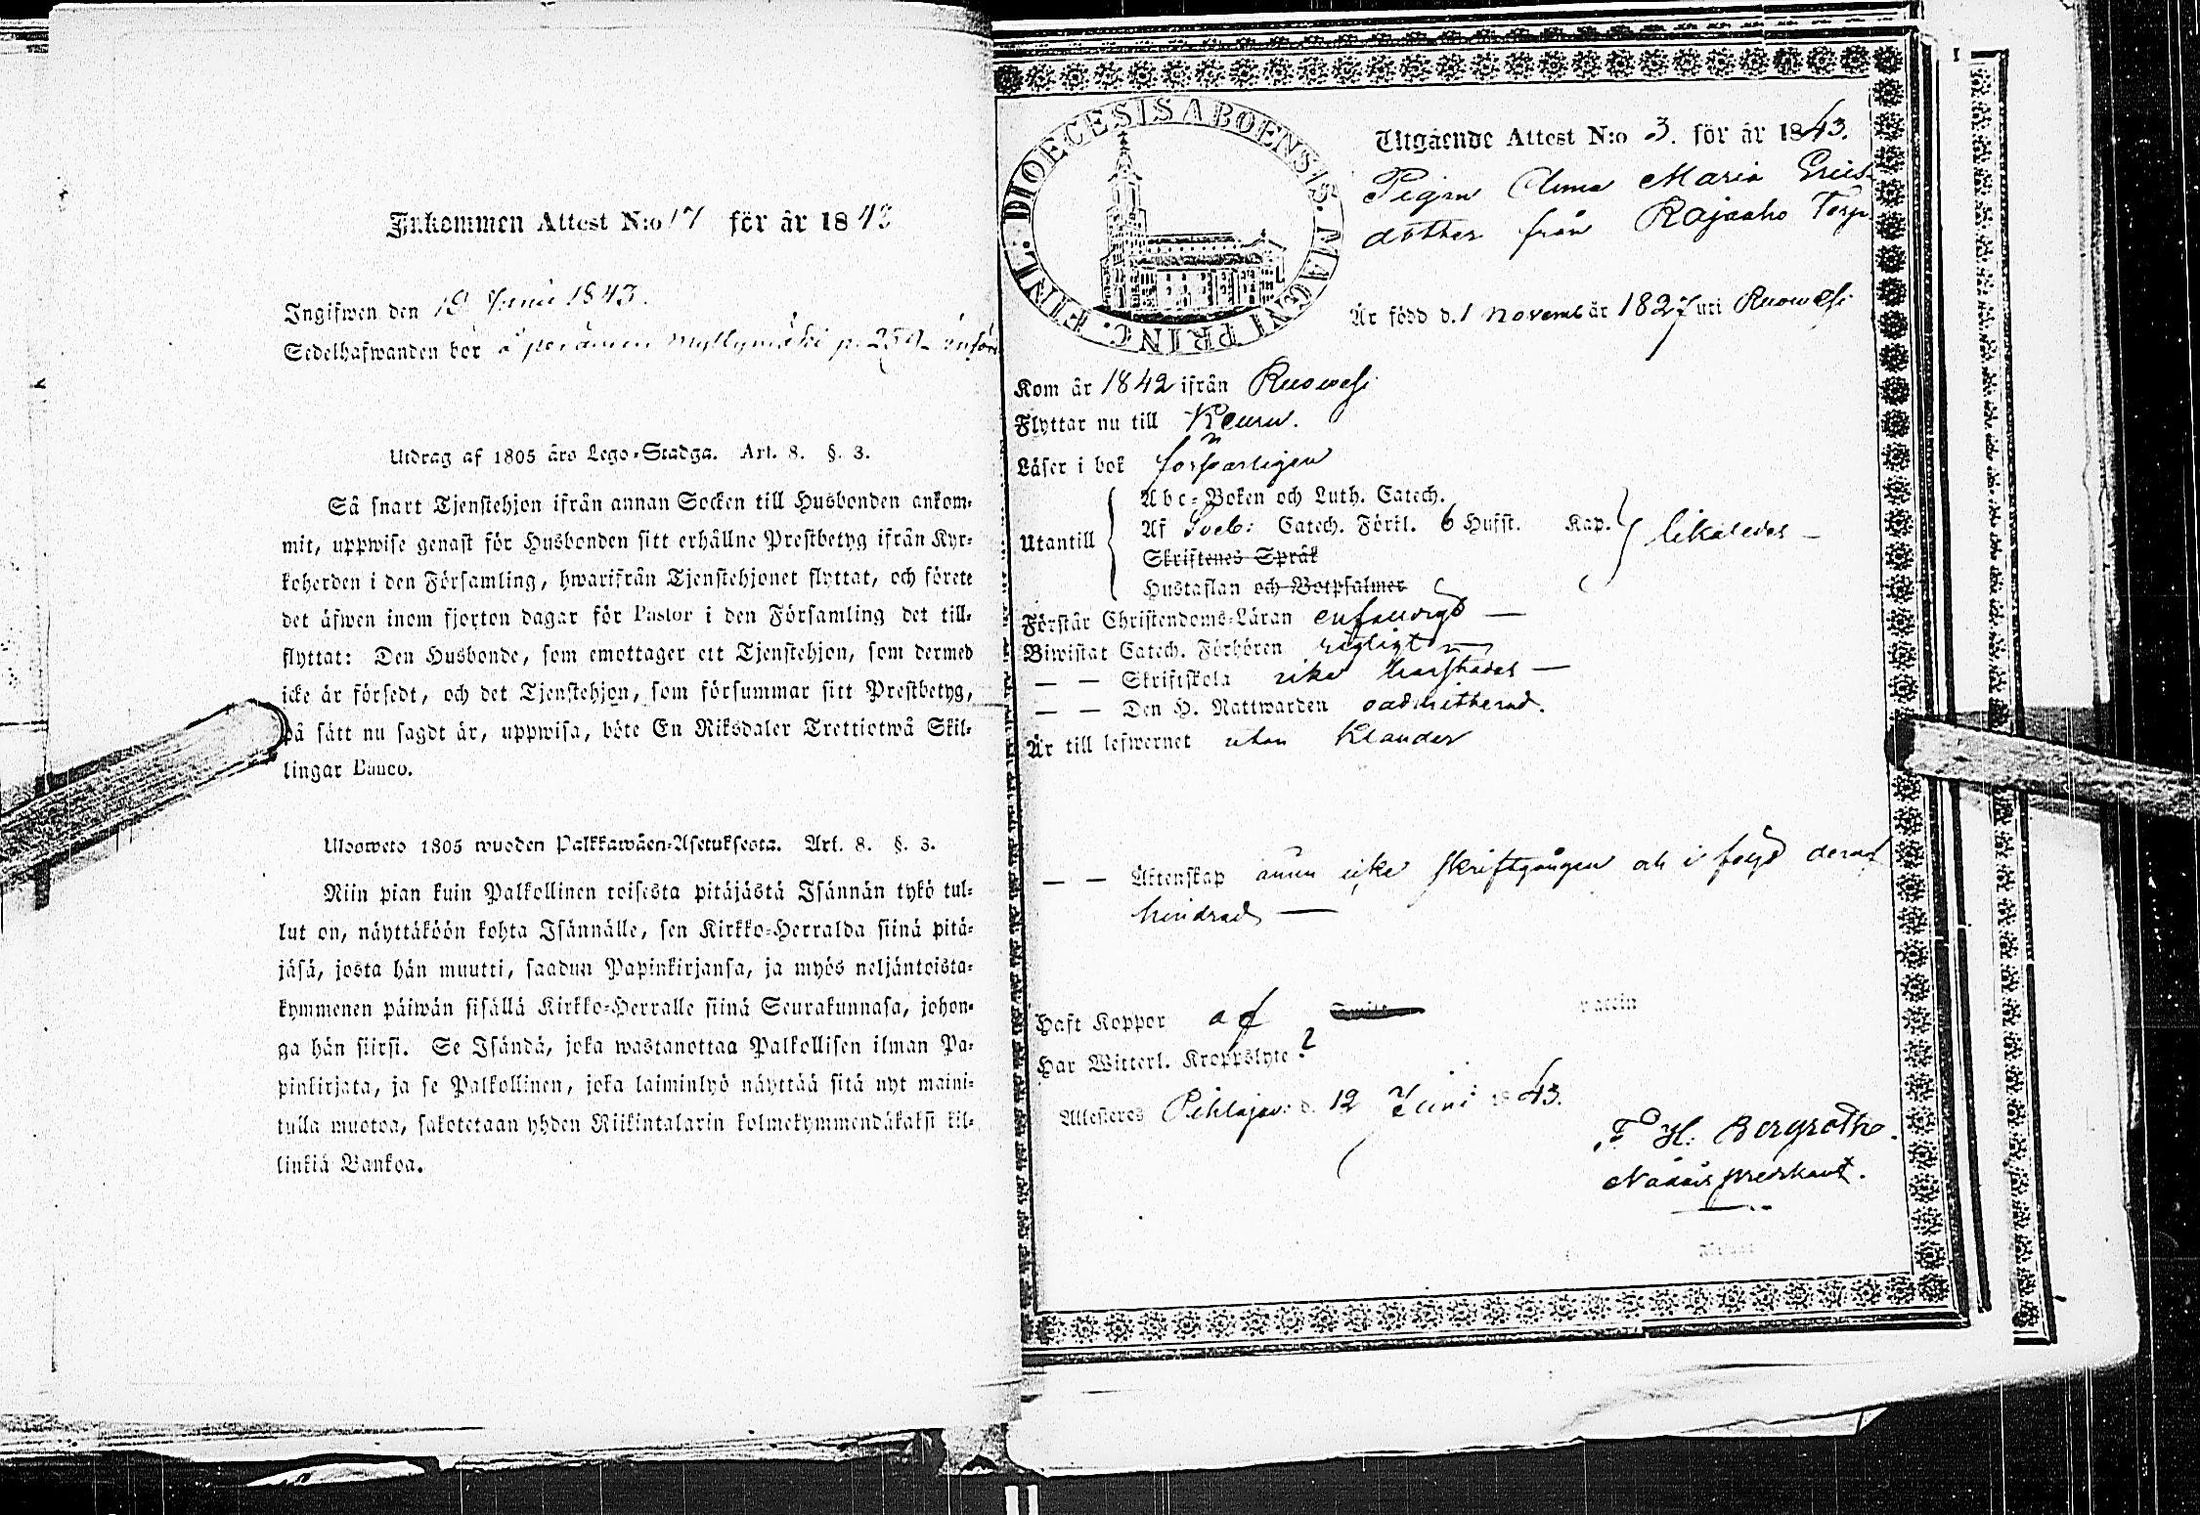 Inkommen Attest N:o 17 för år 1843
Ingifwen den 19 Junii 1843.
Sedelhafwanden bor å peränen Myllymäki p.
Utdrag af 1805 års Lego-Stadga. Art. 8. §. 3.
Så snart Tjenstehjon ifrån annan Socken till Husbonden ankom-
mit, uppwise genast för Husbonden sitt erhållne Prestbetyg ifrån Kyr-
koherden i den Församling, hwarifrån Tjenstehjonet flyttat, och förete
det äfwen inom fjorton dagar för Pastor i den Församling det till-
flyttat: Den Husbonde, som emottager ett Tjenstehjon, som dermed
icke är försedt, och det Tjenstehjon, som försummar sitt Prestbetyg,
på sätt nu sagdt är, uppwisa, böte En Riksdaler Trettiotwå Skil-
lingar Banco.
Uloosweto 1805 wuoden Palkkawäen-Asetuksesta. Art. 8. §. 3.
Niin pian kuin Palkollinen toisesta pitäjästä Isännän tykö tul-
lut on, näyttäköön kohta Isännälle, sen Kirkko-Herralda siinä pitä-
jäsä, josta hän muutti, saadun Papinkirjansa, ja myös neljäntoista-
kymmenen päiwän sisällä Kirkko-Herralle siinä Seurakunnasa, johon-
ga hän siirsi. Se Isändä, joka wastanottaa Palkollisen ilman Pa-
pinkirjata, ja se Palkollinen, joka laiminlyö näyttää sitä nyt maini-
tulla muotoa, sakotetaan yhden Riikintalarin kolmekymmendäkaksi kil-
linkiä Bankoa.
FINL. DIOECESIS ABOENSIS. MAGNI PRINC.
Utgående Attest N:o 3. för år 1843.
Pigan Anna Maria Erics-
dotter från Rajaaho Torp
Är född d. 1 Novemb år 1827 uti Ruowesi
Kom år 1842 ifrån Ruowesi
Flyttar nu till Keuru.
Läser i bok försvarligen
Abc-Boken och Luth. Catech.
Utantill Af Sveb: Catech. Förkl. 6 Hufst. Kap. likaledes —
Skriftenes Språk
Hustaflan och Botpsalmer
Förstår Christendoms-Läran enfaldigt —
Biwistat Catech. Förhören —
— — Skriftskola icke —
— — Den H. Nattwarden oadmitterad.
Är till lefwernet utan klander
— — Äktenskap ännu icke skriftgången och i följd deraf
hindrad —
Haft Koppor af
Har Witterl. Kroppslyte ?
Attesteres Pihlajav: d. 12 Juni 1843.
F H. Bergroth.
Nådårspredikant.